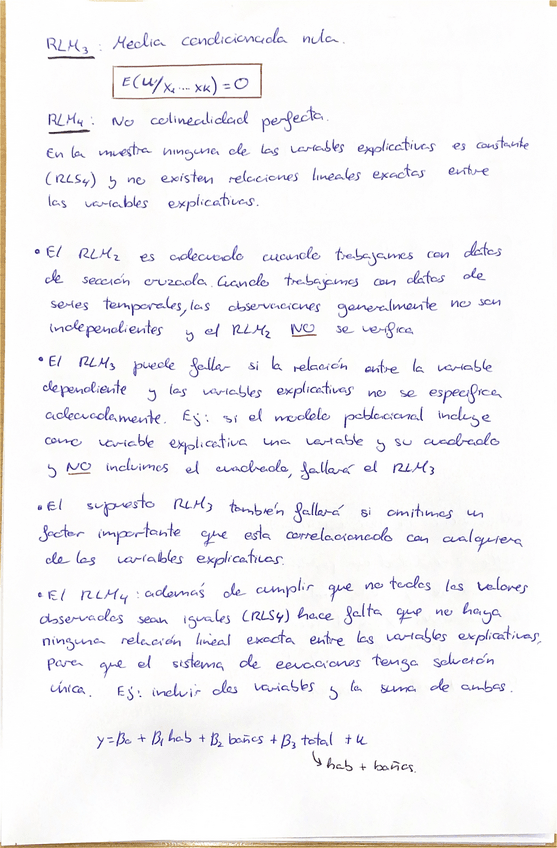 RLM3: Media condicionada nula.
E(u/x1...xk) = 0
RLM4: No colinealidad perfecta.
En la muestra ninguna de las variables explicativas es constante
(RLS4) y no existen relaciones lineales exactas entre
las variables explicativas.
• El RLM2 es adecuado cuando trabajamos con datos
de sección cruzada. Cuando trabajamos con datos de
series temporales, las observaciones generalmente no son
independientes y el RLM2 NO se verifica
• El RLM3 puede fallar si la relación entre la variable
dependiente y las variables explicativas no se especifica
adecuadamente. Ej: si el modelo poblacional incluye
como variable explicativa una variable y su cuadrado
y NO incluimos el cuadrado, fallará el RLM3
• El supuesto RLM3 también fallará si omitimos un
factor importante que esta correlacionado con cualquiera
de las variables explicativas.
• El RLM4: además de cumplir que no todos los valores
observados sean iguales (RLS4) hace falta que no haya
ninguna relación lineal exacta entre las variables explicativas,
para que el sistema de ecuaciones tenga solución
única. Ej: incluir dos variables y la suma de ambas.
y = β0 + β1 hab + β2 baños + β3 total + u
↳ hab + baños.